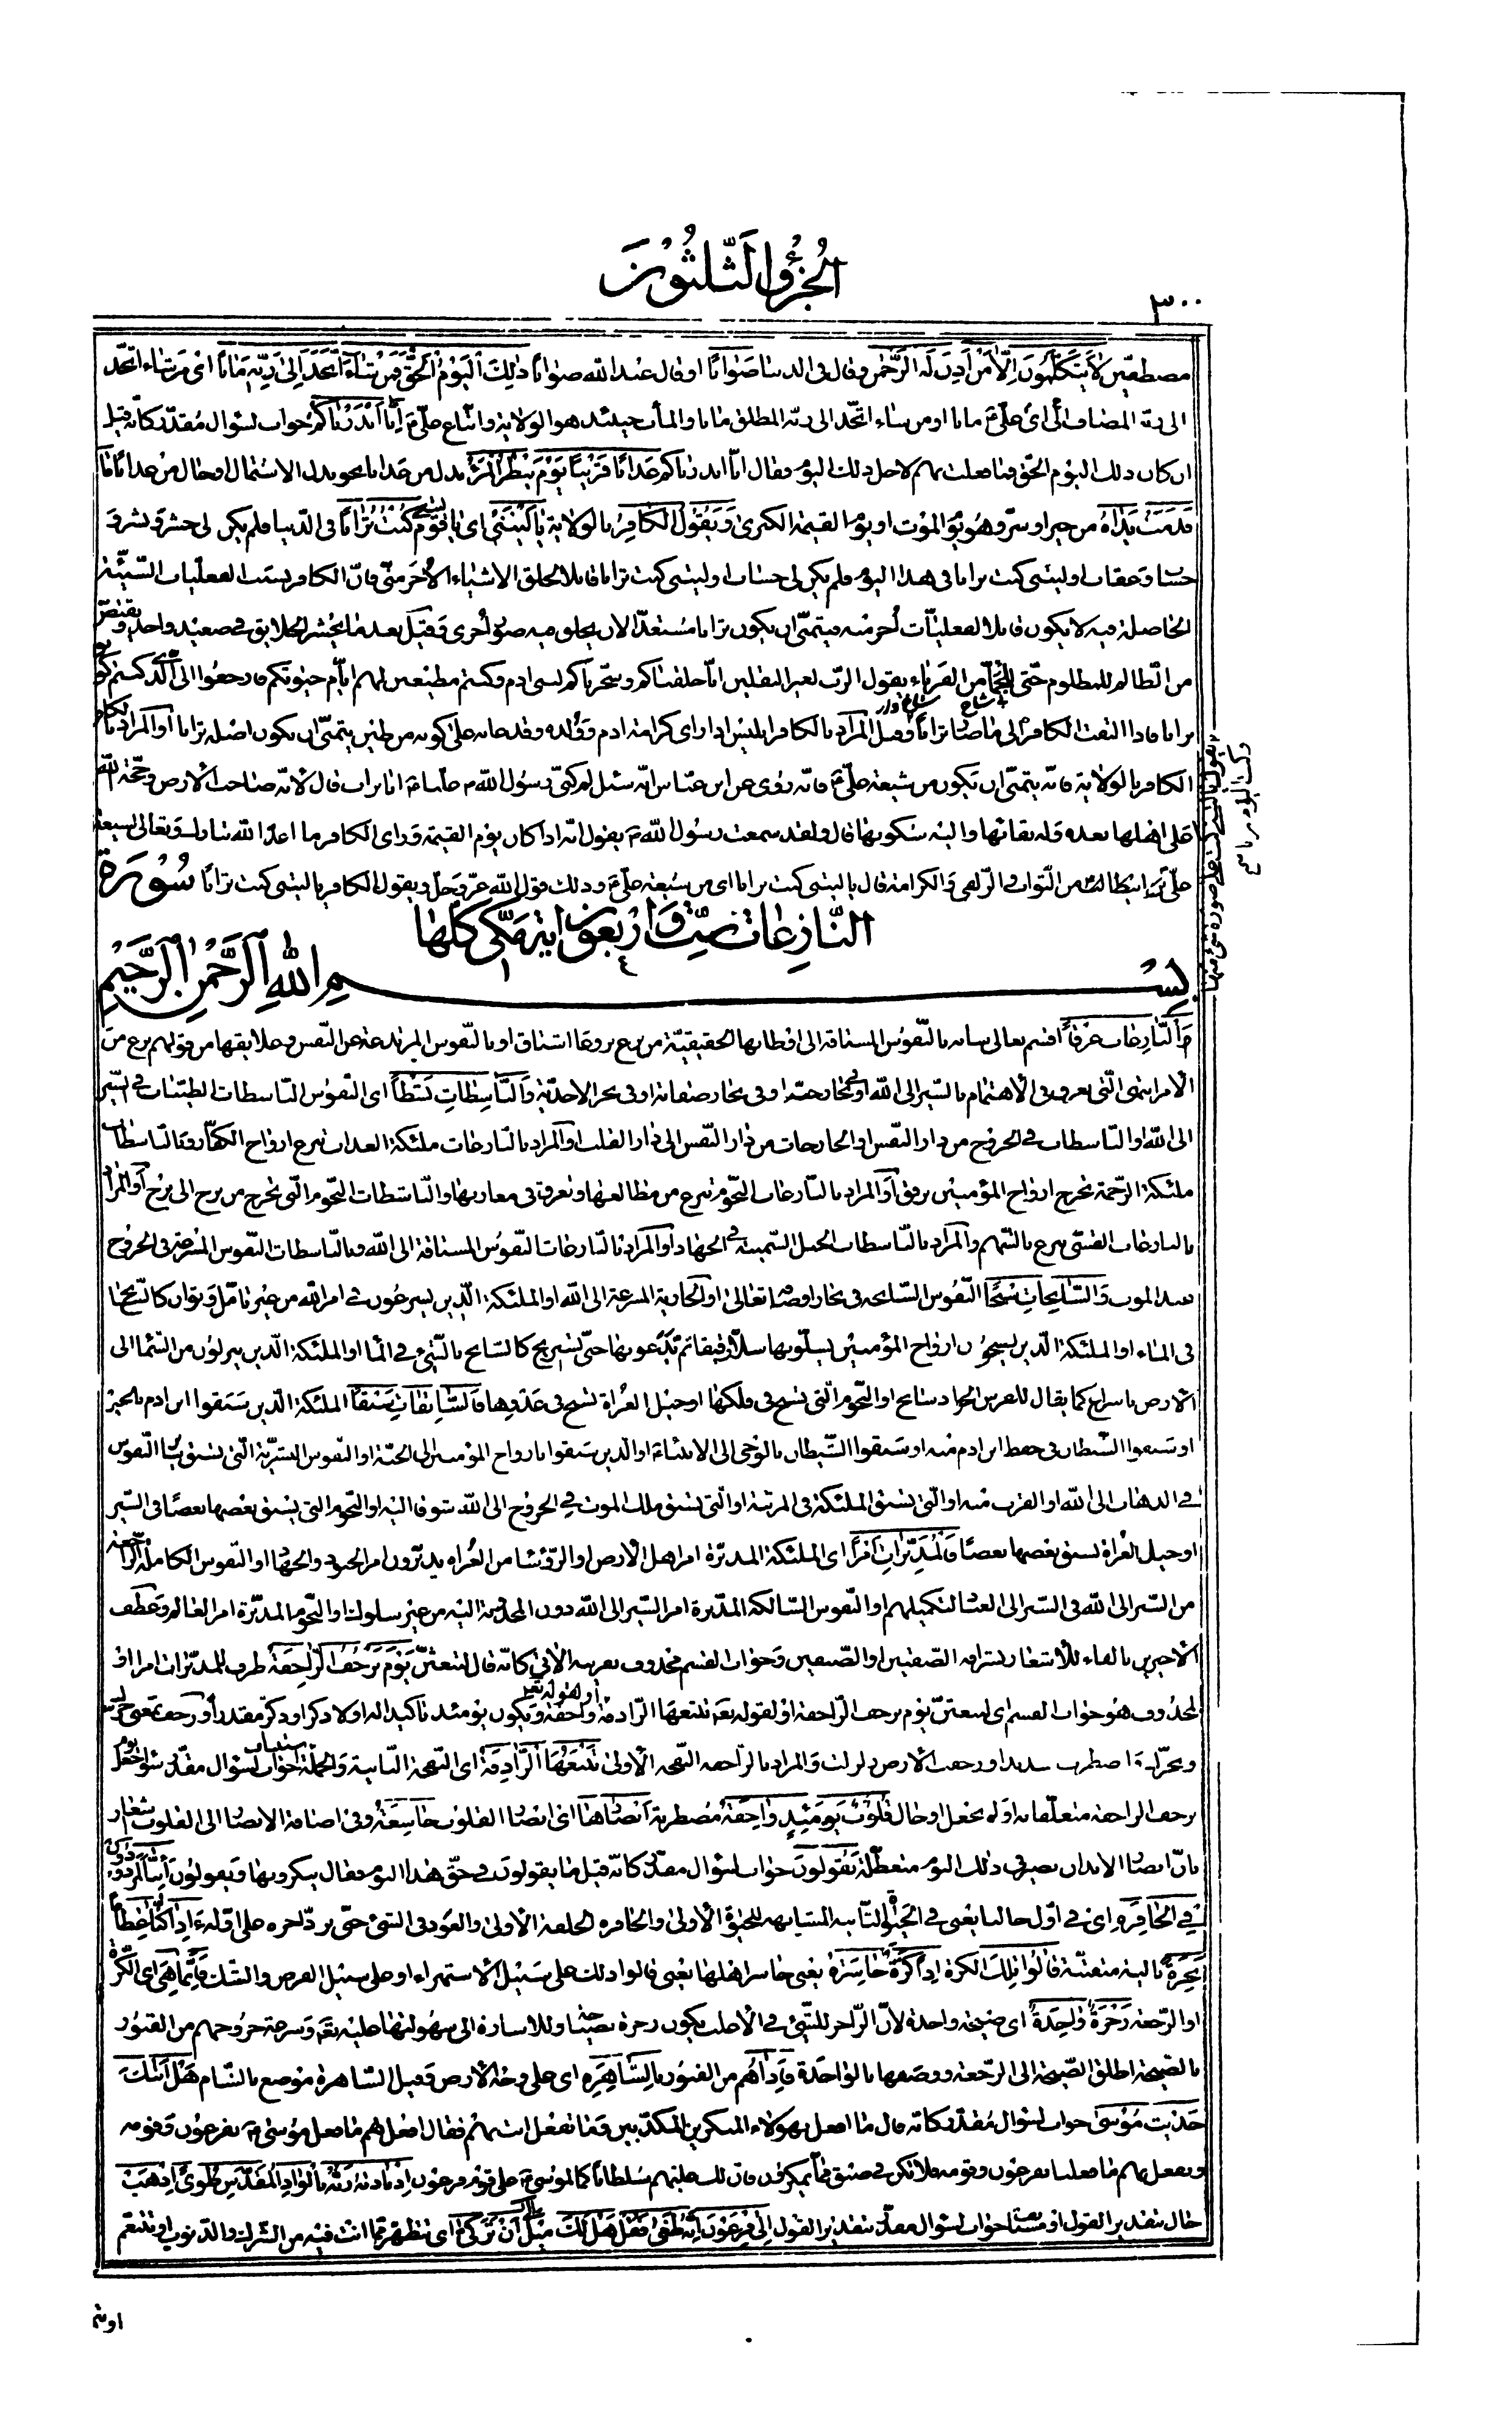 ٣٠٠
الجزؤ الثلثون
مصطفّين لا يتكلّمون إلّا من أذن له الرّحمن وقال فى الدنيا صوابًا او قال عند الله صوابًا ذلك اليوم الحقّ فمن شاء اتّخذ إلى ربّه مآبًا اى من شاء اتّخذ
الى ربّه المضاف الّى اى علىّ ع مابا او من شاء اتّخذ الى ربّه المطلق مابا والمأب حينئذ هو الولاية واتّباع علىّ ع إنّا أنذرناكم جواب لسؤال مقدّر كانّه قيل
ان كان ذلك اليوم الحقّ فما فعلت بهم لاجل ذلك اليوم فقال انّا انذرناكم عذابًا قريبًا يوم ينظر المرء بدل من عذابا نحو بدل الاشتمال او حال من عذابًا ما
قدّمت يداه من خير او شرّ وهو يوم الموت او يوم القيمة الكبرى ويقول الكافر بالولاية يا ليتنى اى يا قوم ليتنى كنت ترابًا فى الدّنيا فلم يكن لى حشر ونشر و
حساب وعقاب او ليتنى كنت ترابا فى هذا اليوم فلم يكن لى حساب او ليتنى كنت ترابا قابلا لخلق الاشياء الأخر منّى فانّ الكافر بسبب الفعليات السّيّئة
الحاصلة فيه لا يكون قابلا لفعليّات أخر منه فيتمنّى ان يكون ترابا مستعدّا لان يخلق منه صور أخرى وقيل بعد ما يحشر الخلايق فى صعيد واحد ويقتصّ
من الظالم للمظلوم حتّى للجمّاء من القرناء يقول الرّب لغير الثقلين انّا خلقناكم وسخّرناكم لبنى ادم وكنتم مطيعين لهم ايّام حيوتكم فارجعوا الى الّذى كنتم كونوا
ترابا فاذا التفت الكافر الى ما صار ترابا وقيل المراد بالكافر ابليس اذا راى كرامة ادم وولده وقد عابه على كونه من طين يتمنّى ان يكون اصله ترابا او المراد بالكافر
الكافر بالولاية فانّه يتمنّى ان يكون من شيعة علىّ ع فانّه روى عن ابن عبّاس انّه سئل لم كنّى رسول الله ص عليّا ع ابا تراب قال لانّه صاحب الارض وحجّة الله
على اهلها بعده وله بقائها واليه سكونها قال ولقد سمعت رسول الله ص يقول انّه اذا كان يوم القيمة وراى الكافر ما اعدّ الله تبارك وتعالى لشيعة
علىّ ع من الثّواب والزّلفى والكرامة قال يا ليتنى كنت ترابا اى من شيعة علىّ ع وذلك قول الله عزّ وجلّ ويقول الكافر يا ليتنى كنت ترابًا سورة
النّازعات ستّ واربعون اية مكّىّ كلّها
بسم الله الرّحمن الرّحيم
والنّازعات غرقًا اقسم تعالى شانه بالنّفوس المشتاقة الى اوطانها الحقيقيّة من نزع نزوعا اشتاق او بالنّفوس المرتدعة عن النّفس وعلايقها من قولهم نزع عن
الامر انتهى الّتى تغرق فى الاهتمام بالسّير الى الله او فى بحار حبّه او فى بحار صفاته او فى بحر الاحديّة والنّاشطات نشطًا اى النّفوس النّاشطات الطيّبات فى السّير
الى الله او النّاشطات فى الخروج من دار النّفس او الخارجات من دار النّفس الى دار القلب او المراد بالنّازعات ملئكة العذاب تنزع ارواح الكفّار والنّاشطات
ملئكة الرّحمة تخرج ارواح المؤمنين برفق او المراد بالنّازعات النّجوم تنزع من مطالعها وتغرق فى مغاربها والنّاشطات النّجوم الّتى تخرج من برج الى برج او المراد
بالنازعات القسىّ تنزع بالسّهم والمراد بالنّاشطات الخيل السّمينة فى الجهاد او المراد بالنّازعات النّفوس المشتاقة الى الله وبالنّاشطات النّفوس المسرعة فى الخروج
عند الموت والسّابحات سبحًا النّفوس السّابحة فى بحار اوصافه تعالى او الجارية المسرعة الى الله او الملئكة الّذين يسرعون فى امر الله من غير تأمّل وتوان كالسّبح
فى الماء او الملئكة الّذين يسبحون ارواح المؤمنين يسلّونها سلّا رقيقا ثم يدعونها حتّى تستريح كالسّابح بالشّىء فى الماء او الملئكة الّذين ينزلون من السّماء الى
الارض باسراع كما يقال للفرس الجواد سابح او النّجوم الّتى تسبح فى فلكها او خيل الغزاة تسبح فى عدوها فالسّابقات سبقًا الملئكة الّذين سبقوا ابن ادم بالخير
او سبقوا الشّيطان فى حفظ ابن ادم منه او سبقوا الشّيطان بالوحى الى الانبياء او الّذين سبقوا بارواح المؤمنين الى الجنّة او النّفوس البشريّة الّتى تسبق سائر النّفوس
فى الذهاب الى الله او القرب منه او الّتى تسبق الملئكة فى المرتبة او الّتى تسبق ملك الموت فى الخروج الى الله شوقا اليه او النّجوم الّتى يسبق بعضها بعضًا فى السّير
او خيل الغزاة تسبق بعضها بعضًا فالمدبّرات أمرًا اى الملئكة المدبّرة امر اهل الارض او الرّؤساء من الغزاة يدبّرون امر الجنود والجهاد او النّفوس الكاملة الرّاجعة
من السّير الى الله فى السّير الى العباد لتكميلهم او النّفوس السّالكة المدبّرة امر السّير الى الله دون المجذوبة اليه من غير سلوك او النّجوم المدبّرة امر العالم وعطف
الاخيرين بالفاء للأشعار بشرافة الصّفتين او الصّنفين وجواب القسم محذوف بقرينة الاتى كانّه قال لتبعثنّ يوم ترجف الرّاجفة ظرف للمدبّرات امرا او
لمحذوف هو جواب القسم اى لتبعثنّ يوم ترجف الرّاجفة او لقوله تع تتبعها الرّادفة او لقوله تع واجفة ويكون يومئذ تاكيدا له او لاذكر او ذكّر مقدرا ورجف بمعنى حرّك
وتحرّك واضطرب شديدا ورجفت الارض زلزلت والمراد بالرّاجفة النّفخة الاولى تتبعها الرّادفة اى النّفخة الثّانية والجملة جواب لسؤال مقدّر سواء جعل يوم
ترجف الراجفة متعلّقا به اوّله بجعل او حال قلوب يومئذ واجفة مضطربة أبصارها اى ابصار القلوب خاشعة وفى اضافة الابصار الى القلوب اشعار
بانّ ابصار الابدان تصير فى ذلك اليوم معطّلة يقولون جواب لسؤال مقدّر كانّه قيل ما يقولون فى حقّ هذا اليوم فقال ينكرونها ويقولون أئنّا لمردودون
فى الحافرة اى فى اوّل حالنا يعنى فى الحيوة الثّانية المشابهة للحيوة الاولى والحافرة الخلقة الاولى والعود فى الشّئ حتّى يردّ اخره على اوّله ءإذا كنّا عظامًا
نخرة بالية متفتّتة قالوا تلك الكرة إذًا كرّة خاسرة يعنى خاسر اهلها يعنى قالوا ذلك على سبيل الاستهزاء او على سبيل الفرض والشّك فإنّما هى اى الكرّة
او الرّجعة زجرة واحدة اى صيحة واحدة لانّ الزّاجر للشّئ فى الاغلب يكون زجره بصيحة وللاشارة الى سهولتها عليه تع وسرعة خروجهم من القبور
بالصّيحة اطلق الصّيحة الى الرّجعة ووصفها بالواحدة فإذا هم من القبور بالسّاهرة اى على وجه الارض وقيل السّاهرة موضع بالشّام هل أتاك
حديث موسى جواب لسؤال مقدّر كانّه قال ما افعل بهولاء المنكرين المكذّبين وما تفعل انت بهم فقال افعل بهم ما فعل موسى ع بفرعون وقومه
ونفعل بهم ما فعلنا بفرعون وقومه فلا تكن فى ضيق ممّا يمكرون فانّ لك عليهم سلطانًا كما لموسى ع على قوم فرعون إذ ناداه ربّه بالواد المقدّس طوى اذهب
حال بتقدير القول او مستأنف جواب لسؤال مقدّر بتقدير القول إلى فرعون إنّه طغى فقل هل لك ميل الى أن تزكّى اى تتطهّر ممّا انت فيه من الشّرك والذّنوب او تتنعّم
او تنم